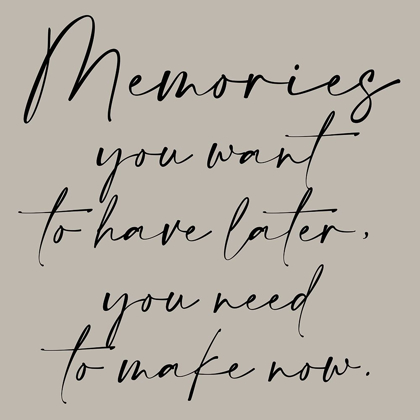 Memories
you want
to have later,
you need
to make now.